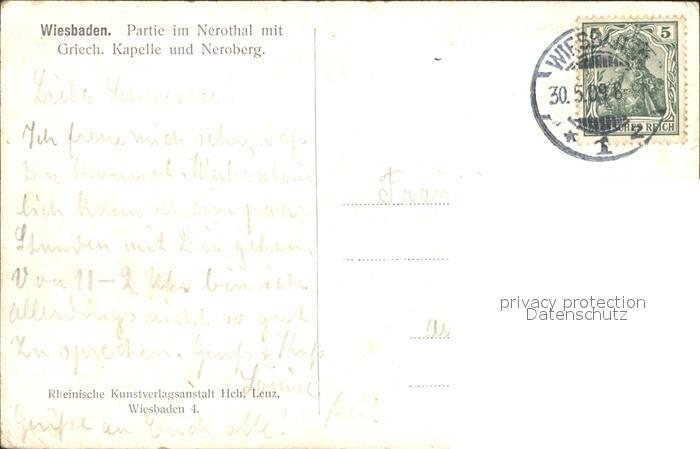 Wiesbaden. Partie im Nerothal mit
Griech. Kapelle und Neroberg.
Liebe Schwester!
Ich freue mich sehr, daß
Du kommst. Wahrschein
lich kann ich ein paar
Stunden mit Dir gehen.
Von 11-2 Uhr bin ich
allerdings nicht so gut
zu sprechen. Gruß & Kuß
Louise
Rheinische Kunstverlagsanstalt Hch. Lenz,
Wiesbaden 4.
Grüße an Euch alle!
frei!
5 5
REICH
WIESBADEN
30.5.09.8
* 1 2
privacy protection
Datenschutz